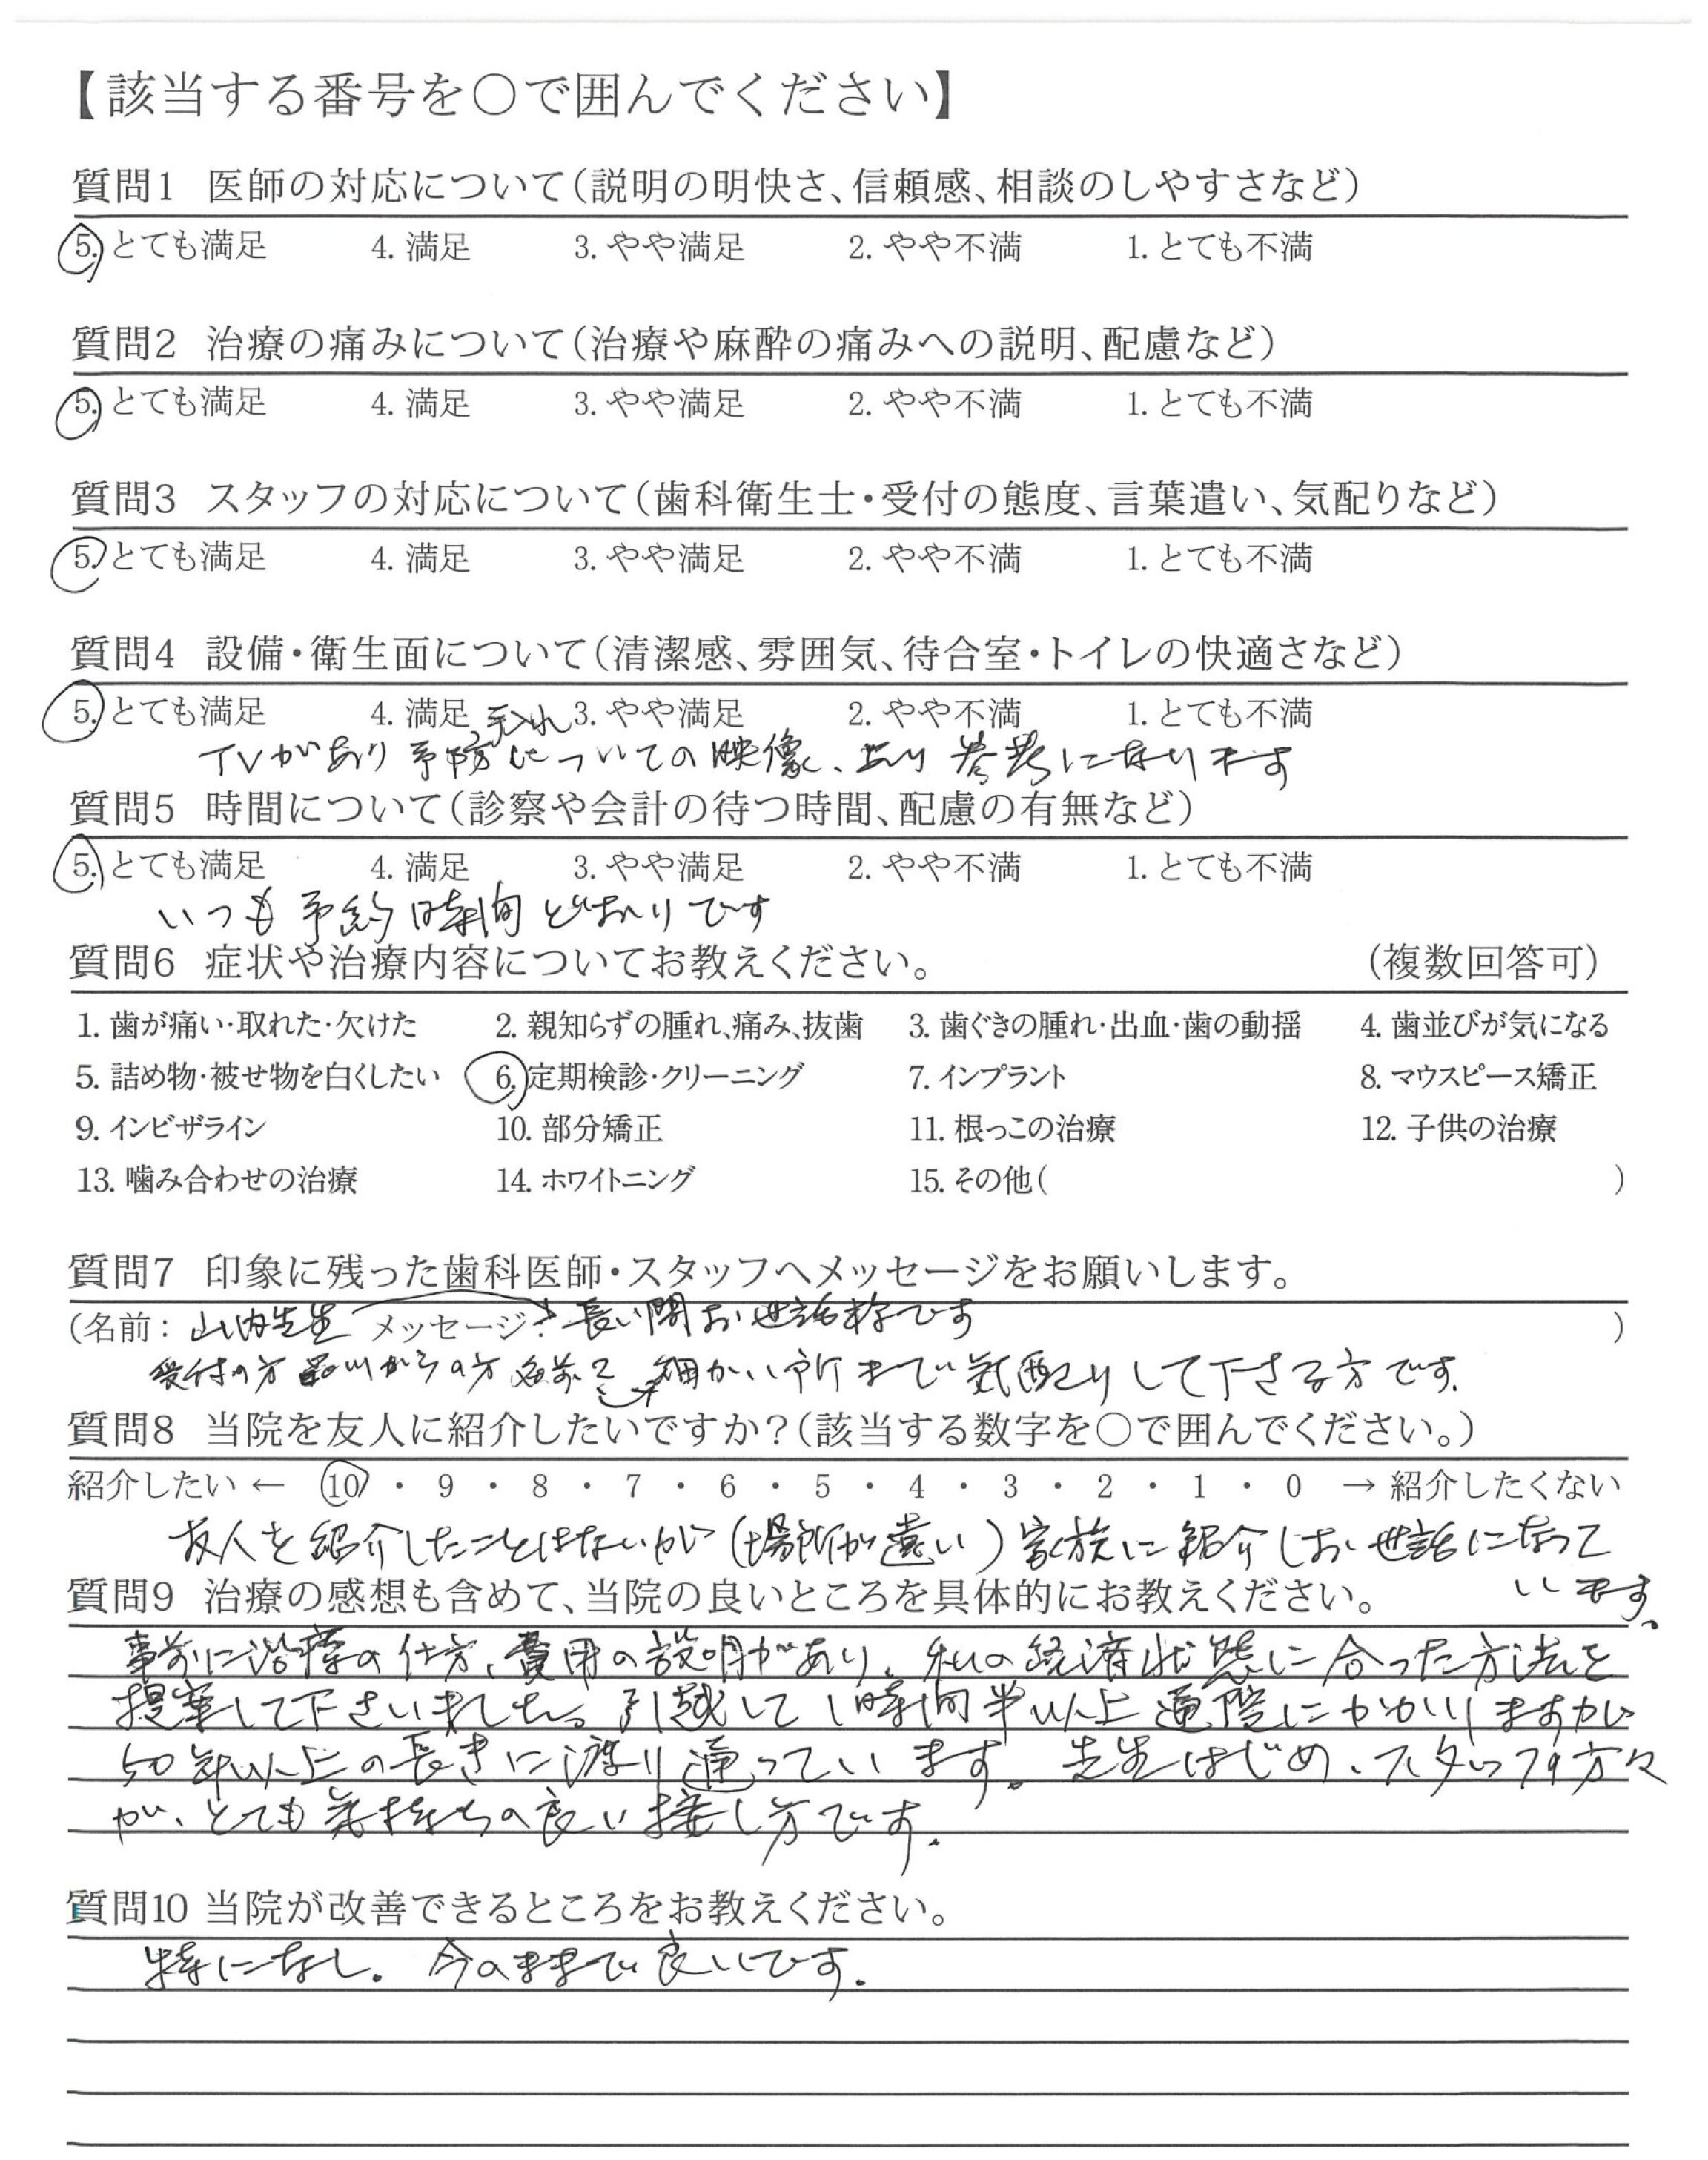 【該当する番号を○で囲んでください】
質問1 医師の対応について(説明の明快さ、信頼感、相談のしやすさなど)
5. とても満足 4. 満足 3. やや満足 2. やや不満 1. とても不満
質問2 治療の痛みについて(治療や麻酔の痛みへの説明、配慮など)
5. とても満足 4. 満足 3. やや満足 2. やや不満 1. とても不満
質問3 スタッフの対応について(歯科衛生士・受付の態度、言葉遣い、気配りなど)
5. とても満足 4. 満足 3. やや満足 2. やや不満 1. とても不満
質問4 設備・衛生面について(清潔感、雰囲気、待合室・トイレの快適さなど)
5. とても満足 4. 満足 3. やや満足 2. やや不満 1. とても不満
手入れ
TVがあり予防についての映像、 参考になります
質問5 時間について(診察や会計の待つ時間、配慮の有無など)
5. とても満足 4. 満足 3. やや満足 2. やや不満 1. とても不満
いつも予約時間どおりです
質問6 症状や治療内容についてお教えください。 (複数回答可)
1. 歯が痛い・取れた・欠けた 2. 親知らずの腫れ、痛み、抜歯 3. 歯ぐきの腫れ・出血・歯の動揺 4. 歯並びが気になる
5. 詰め物・被せ物を白くしたい 6. 定期検診・クリーニング 7. インプラント 8. マウスピース矯正
9. インビザライン 10. 部分矯正 11. 根っこの治療 12. 子供の治療
13. 噛み合わせの治療 14. ホワイトニング 15. その他( )
質問7 印象に残った歯科医師・スタッフへメッセージをお願いします。
(名前: 山内先生 メッセージ: 長い間お世話様です )
受付の方 からの方 名前? 細かい所まで気配りして下さる方です.
質問8 当院を友人に紹介したいですか?(該当する数字を○で囲んでください。)
紹介したい ← 10 ・ 9 ・ 8 ・ 7 ・ 6 ・ 5 ・ 4 ・ 3 ・ 2 ・ 1 ・ 0 → 紹介したくない
友人を紹介したことはないが(場所が遠い)家族に紹介しお世話になって
います。
質問9 治療の感想も含めて、当院の良いところを具体的にお教えください。
事前に治療の仕方、費用の説明があり、私の経済状態に合った方法を
提案して下さいました。引越して1時間半以上通院にかかりますが
50年以上の長きに渡り通っています。先生はじめ、スタッフの方々
が、とても気持ちの良い接し方です.
質問10 当院が改善できるところをお教えください。
特になし. 今のままで良いです.